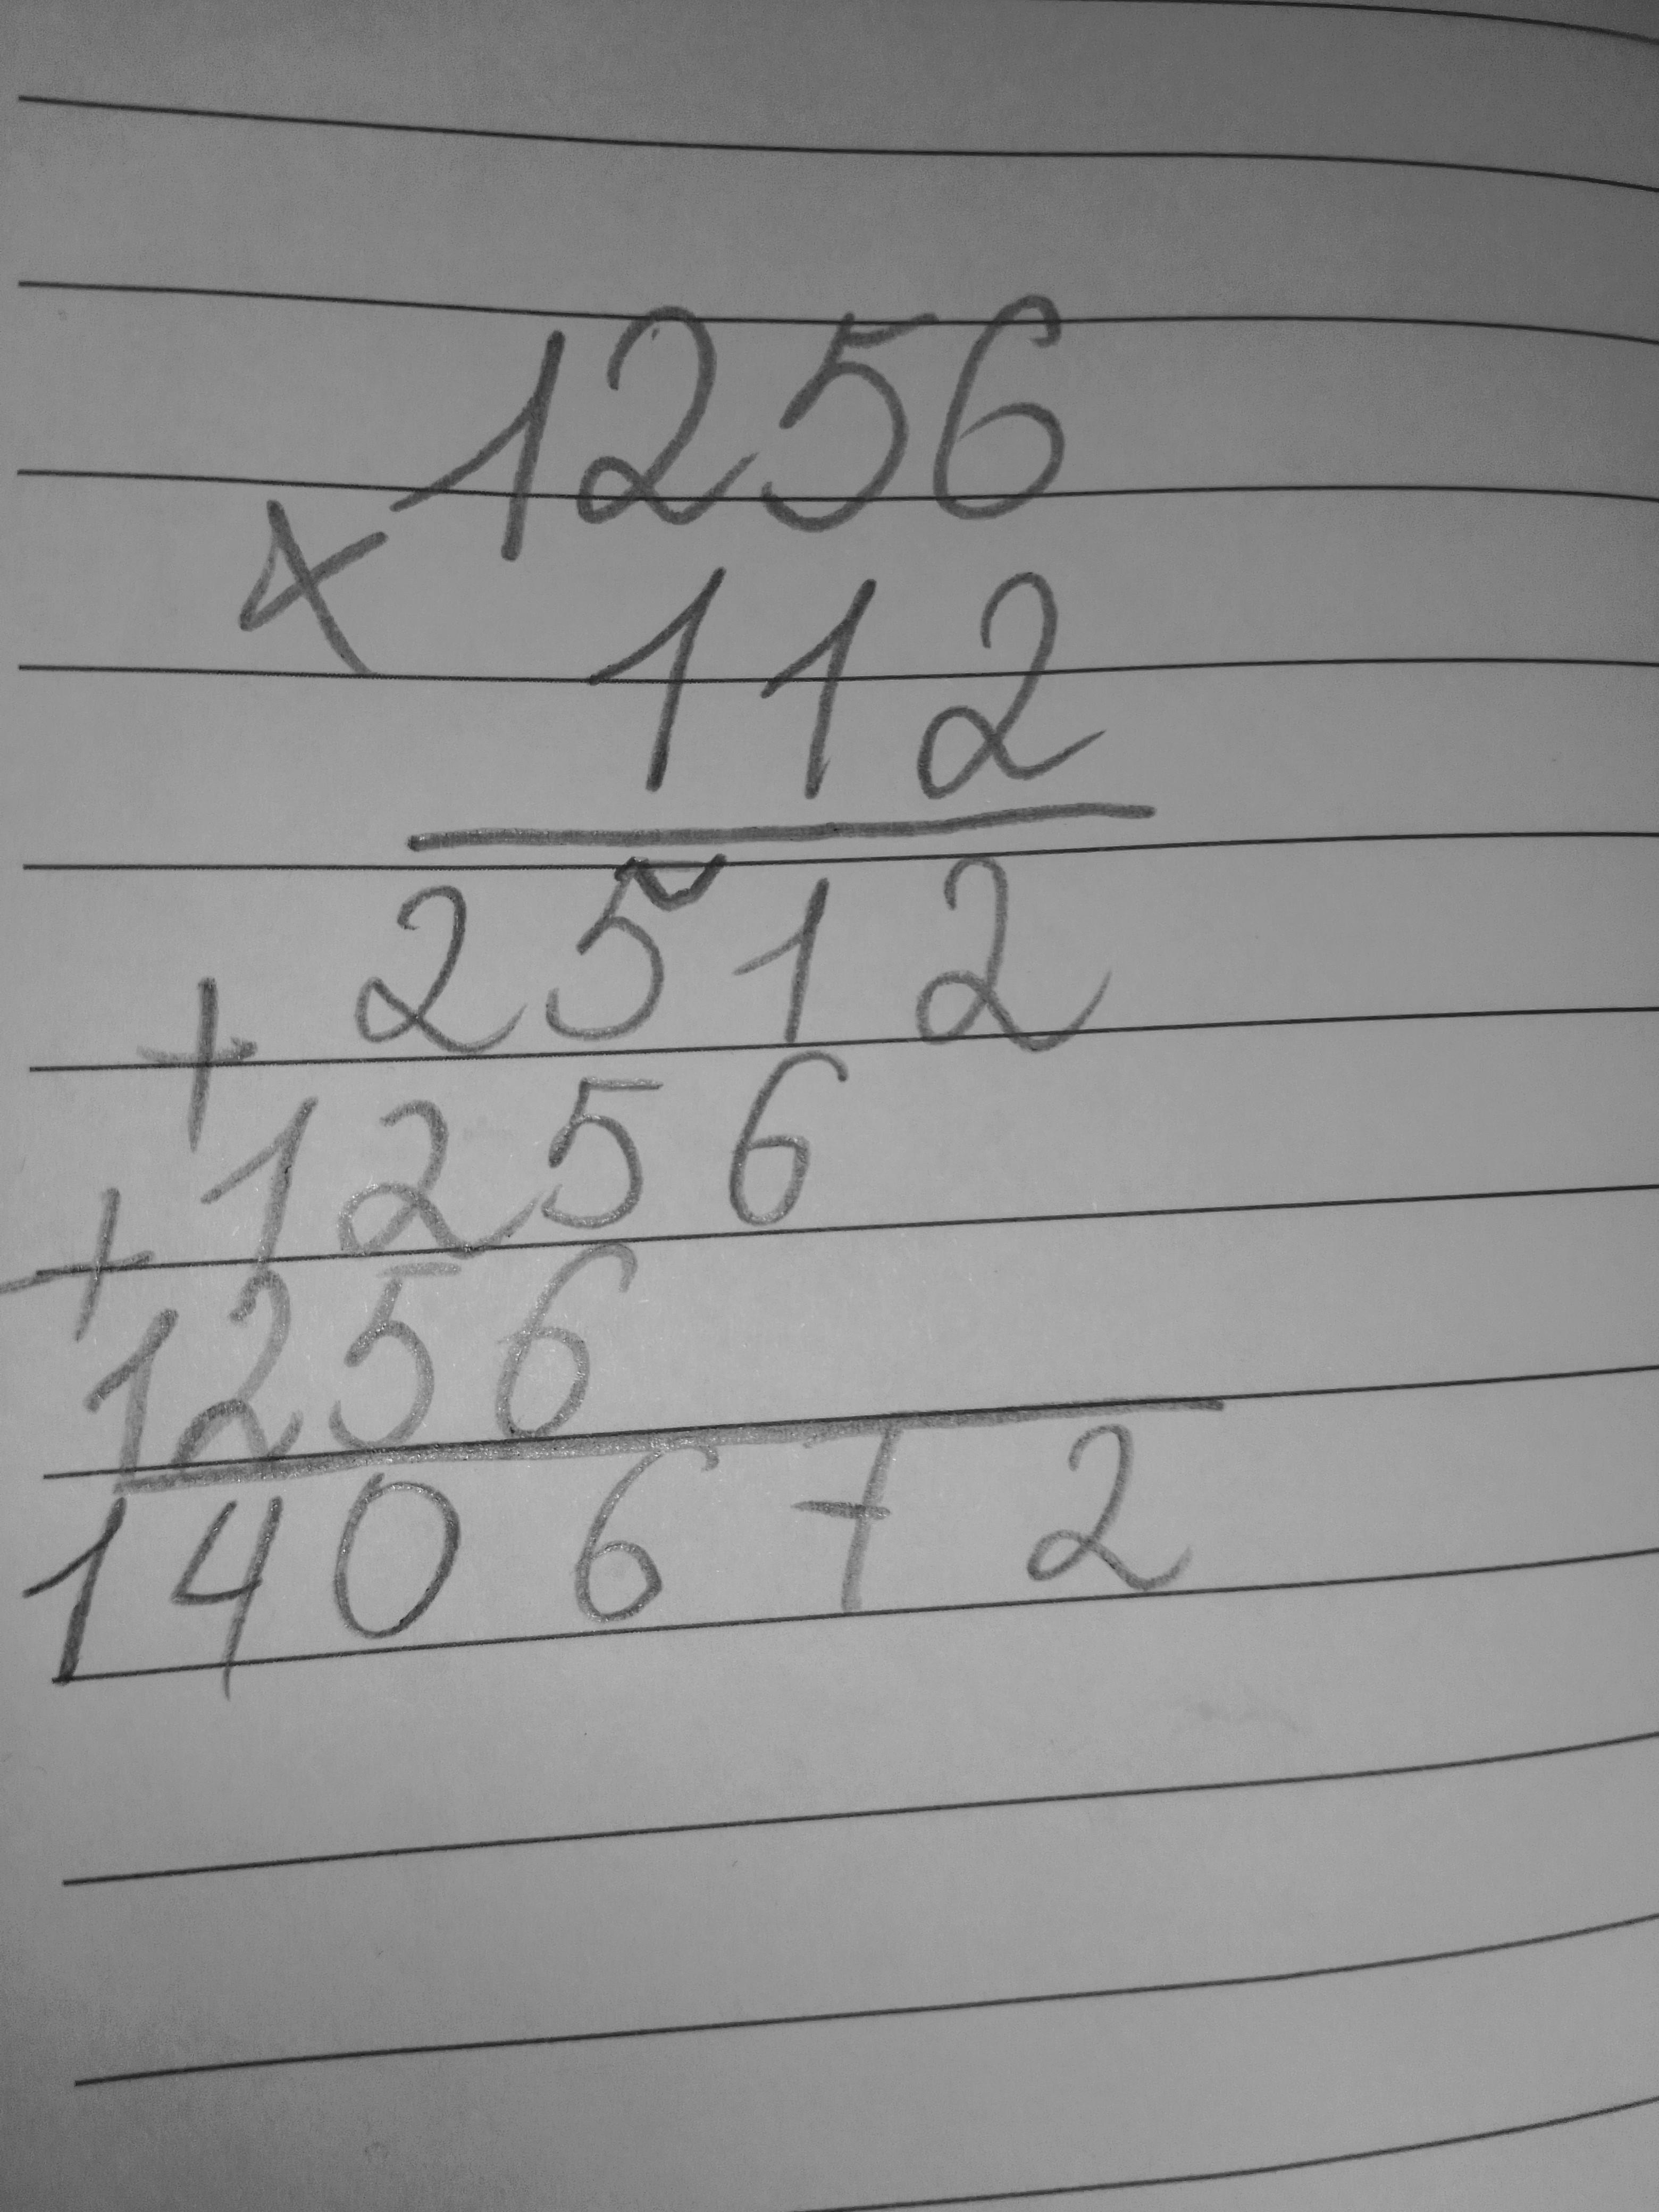 1256
x 112
2512
+ 1256
+ 1256
140672